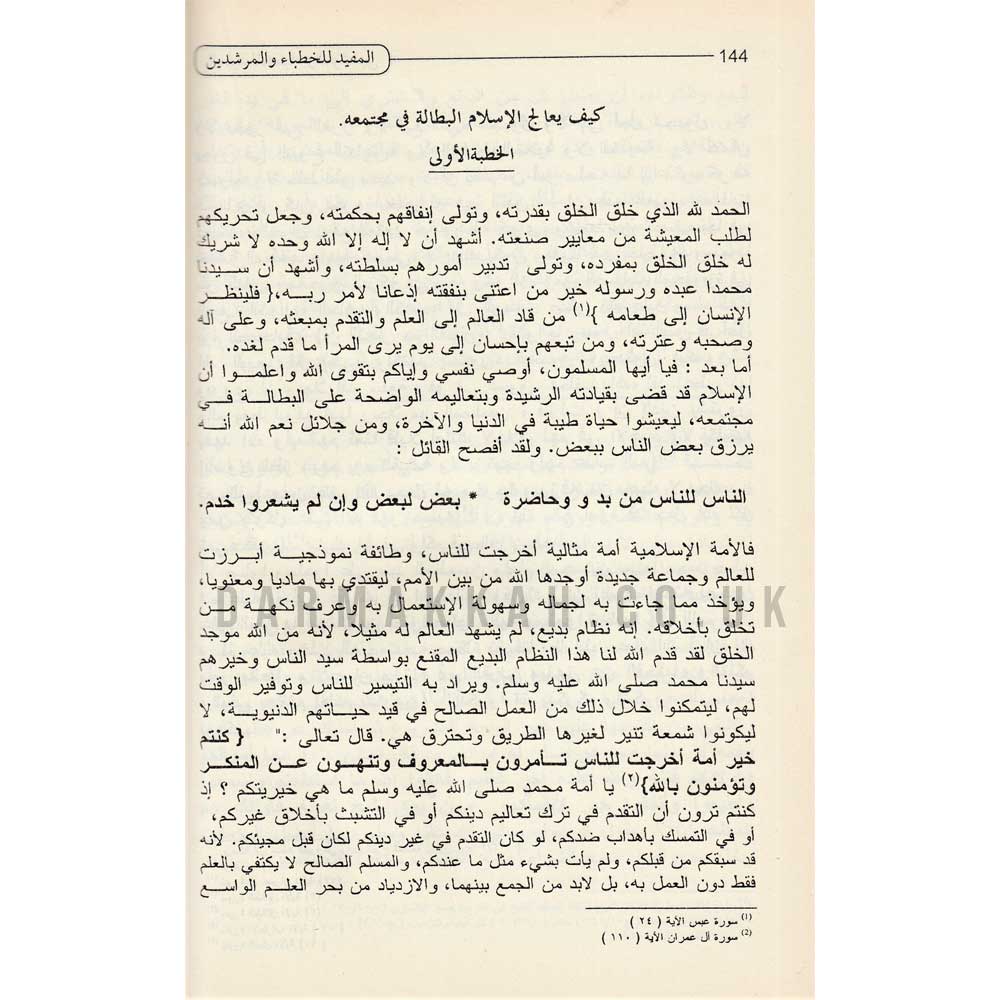 144
المفيد للخطباء والمرشدين
كيف يعالج الإسلام البطالة في مجتمعه.
الخطبة الأولى
الحمد لله الذي خلق الخلق بقدرته، وتولى إنفاقهم بحكمته، وجعل تحريكهم
لطلب المعيشة من معايير صنعته. أشهد أن لا إله إلا الله وحده لا شريك
له خلق الخلق بمفرده، وتولى تدبير أمورهم بسلطته، وأشهد أن سيدنا
محمدا عبده ورسوله خير من اعتنى بنفقته إذعانا لأمر ربه،{ فلينظر
الإنسان إلى طعامه }(١) من قاد العالم إلى العلم والتقدم بمبعثه، وعلى آله
وصحبه وعترته، ومن تبعهم بإحسان إلى يوم يرى المرأ ما قدم لغده.
أما بعد : فيا أيها المسلمون، أوصي نفسي وإياكم بتقوى الله واعلموا أن
الإسلام قد قضى بقيادته الرشيدة وبتعاليمه الواضحة على البطالة في
مجتمعه، ليعيشوا حياة طيبة في الدنيا والآخرة، ومن جلائل نعم الله أنه
يرزق بعض الناس ببعض. ولقد أفصح القائل :
الناس للناس من بد و وحاضرة * بعض لبعض وإن لم يشعروا خدم.
فالأمة الإسلامية أمة مثالية أخرجت للناس، وطائفة نموذجية أبرزت
للعالم وجماعة جديدة أوجدها الله من بين الأمم، ليقتدي بها ماديا ومعنويا،
ويؤخذ مما جاءت به لجماله وسهولة الإستعمال به وعرف نكهة من
تخلق بأخلاقه. إنه نظام بديع، لم يشهد العالم له مثيلا، لأنه من الله موجد
الخلق لقد قدم الله لنا هذا النظام البديع المقنع بواسطة سيد الناس وخيرهم
سيدنا محمد صلى الله عليه وسلم. ويراد به التيسير للناس وتوفير الوقت
لهم، ليتمكنوا خلال ذلك من العمل الصالح في قيد حياتهم الدنيوية، لا
ليكونوا شمعة تنير لغيرها الطريق وتحترق هي. قال تعالى :" { كنتم
خير أمة أخرجت للناس تأمرون بالمعروف وتنهون عن المنكر
وتؤمنون بالله}(٢) يا أمة محمد صلى الله عليه وسلم ما هي خيريتكم ؟ إذ
كنتم ترون أن التقدم في ترك تعاليم دينكم أو في التشبث بأخلاق غيركم،
أو في التمسك بأهداب ضدكم، لو كان التقدم في غير دينكم لكان قبل مجيئكم. لأنه
قد سبقكم من قبلكم، ولم يأت بشيء مثل ما عندكم، والمسلم الصالح لا يكتفي بالعلم
فقط دون العمل به، بل لابد من الجمع بينهما، والازدياد من بحر العلم الواسع
(1) سورة عبس الآية ( ٢٤ )
(2) سورة آل عمران الآية ( ١١٠ )
DARMAKKAH.CO.UK